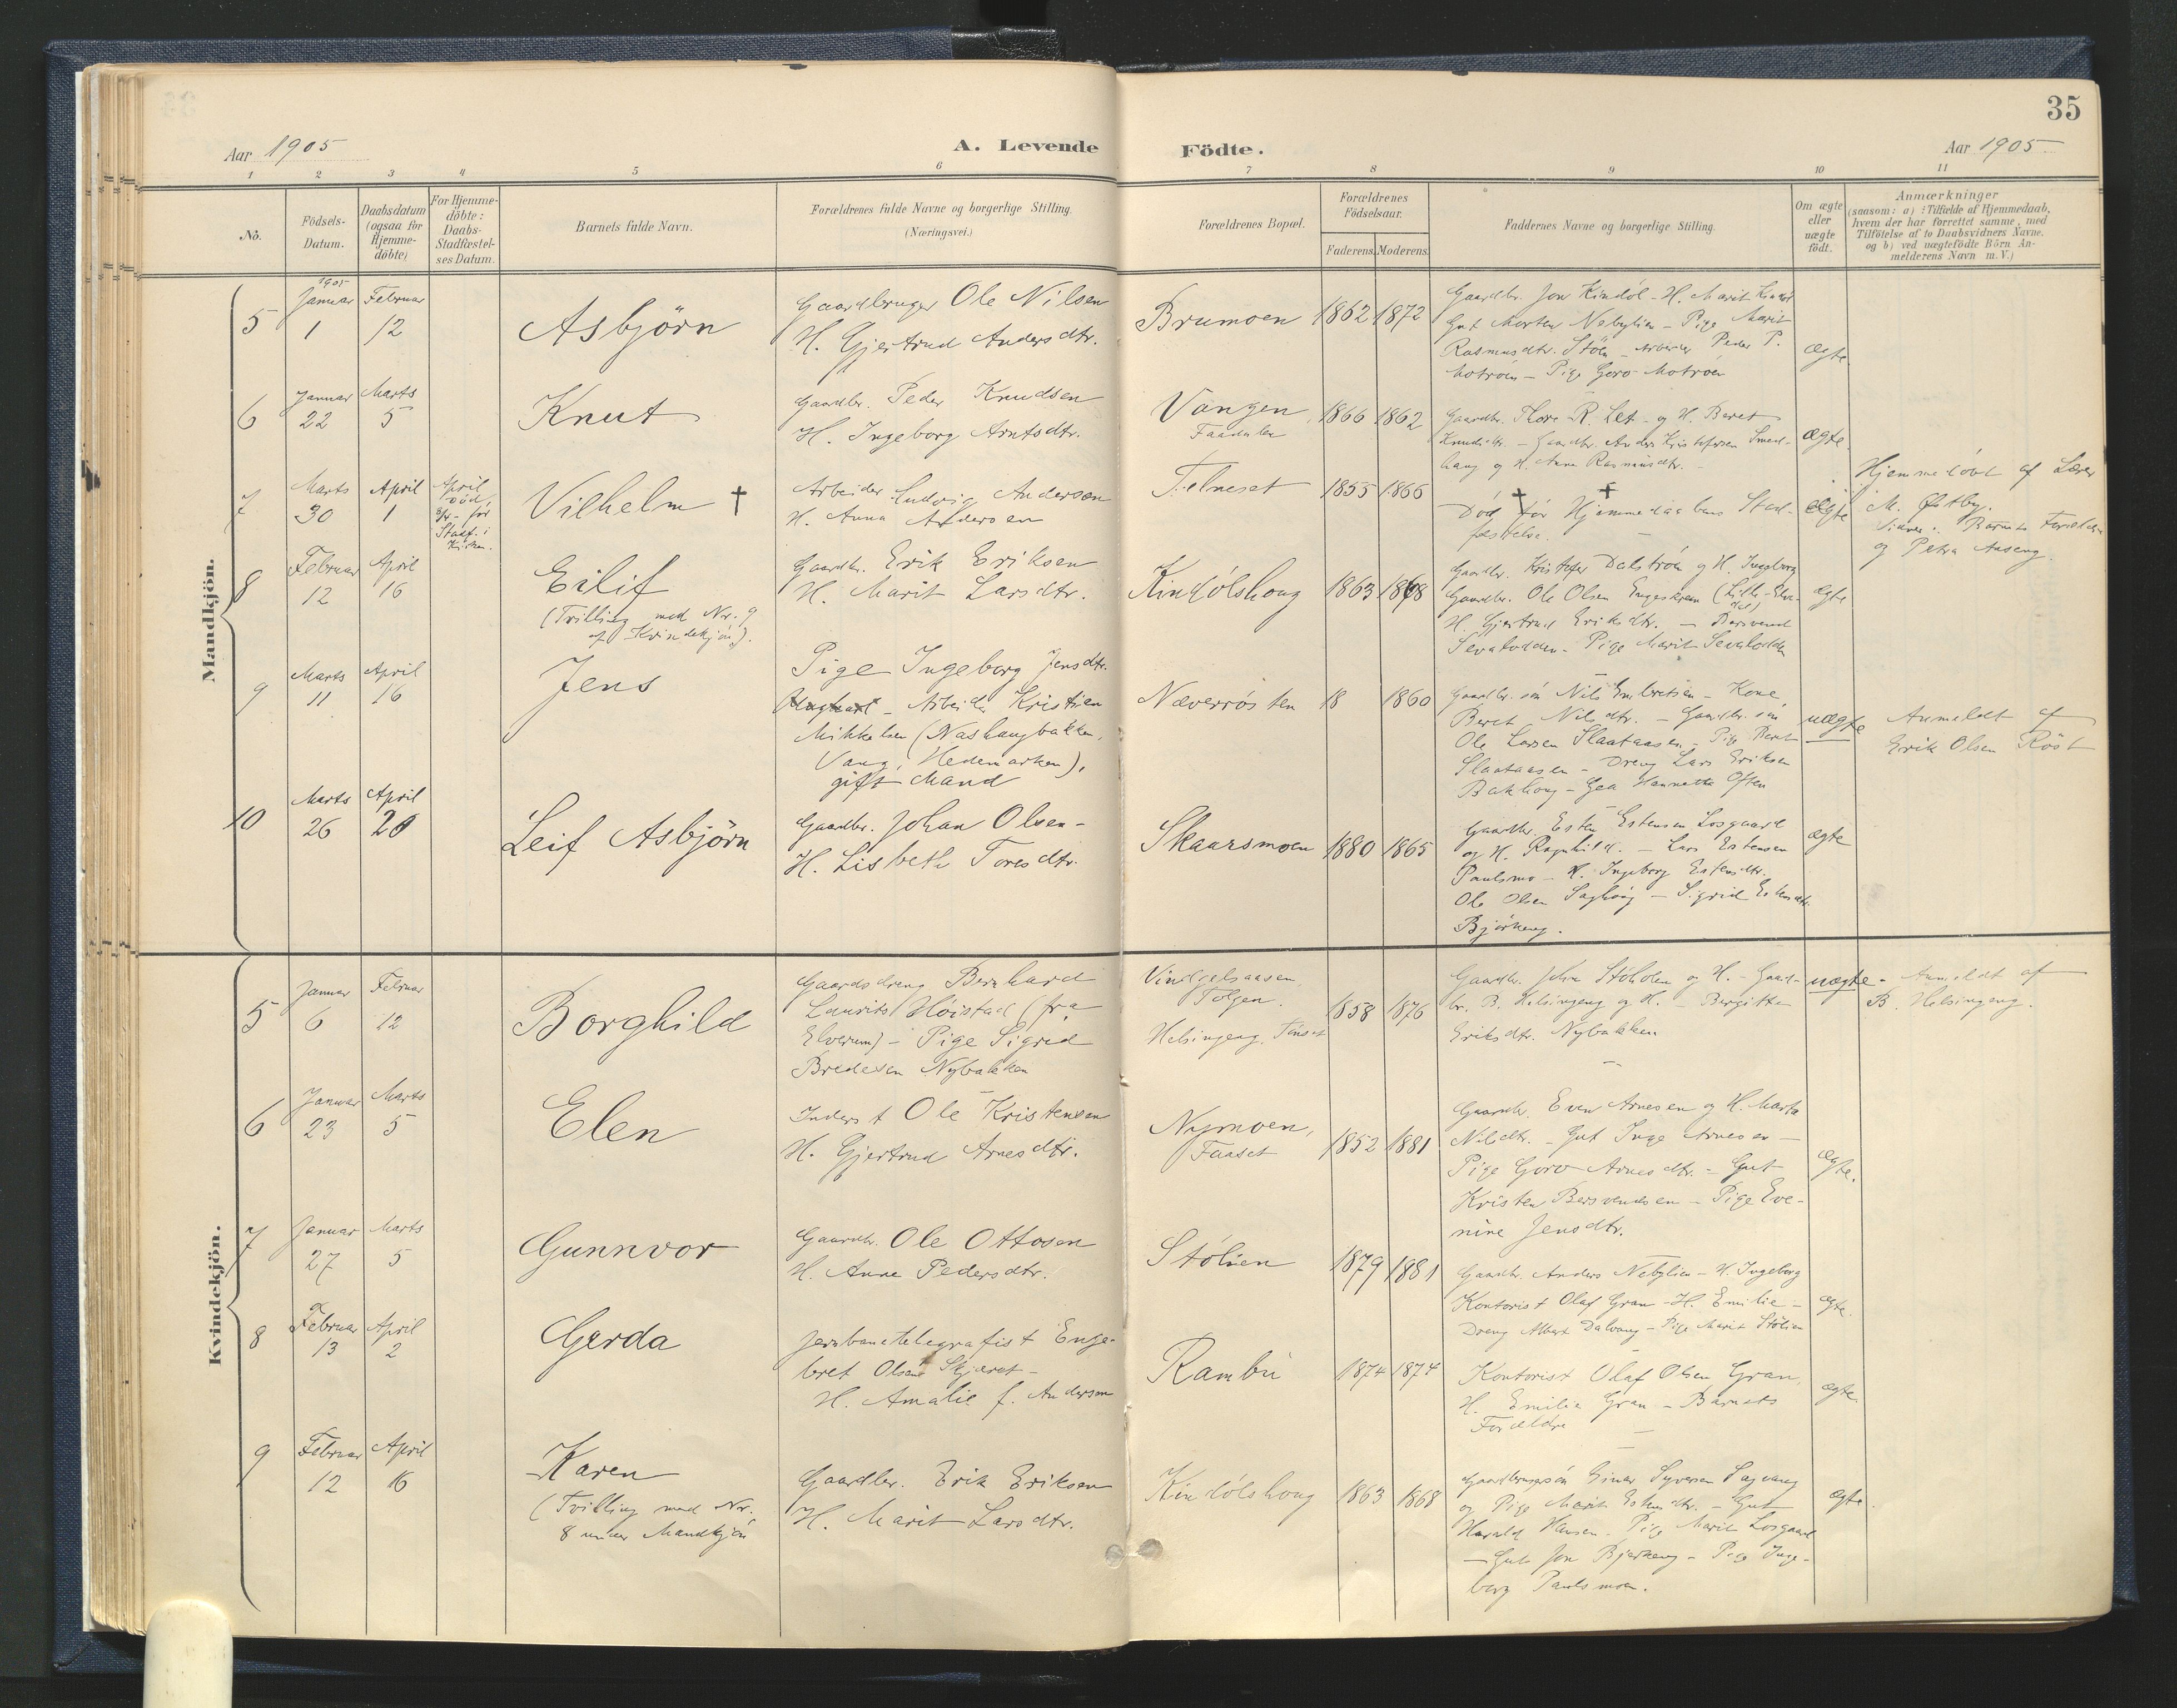 35
Aar 1905
A. Levende Födte.
Aar 1905
1 2 3 4 5 6 7 8 9 10 11
No.
Födsels-
Datum.
Daabsdatum
(ogsaa for
Hjemme-
döbte)
For Hjemme-
döbte:
Daabs-
Stadfæstel-
ses Datum.
Barnets fulde Navn.
Forældrenes fulde Navne og borgerlige Stilling.
(Næringsvei.)
Forældrenes Bopæl.
Forældrenes
Födselsaar.
Faderens. Moderens.
Faddernes Navne og borgerlige Stilling.
Om ægte
eller
uægte
födt.
Anmærkninger
(saasom: a) i Tilfælde af Hjemmedaab,
hvem der har forrettet samme, med
Tilföielse af to Daabsvidners Navne.
og b) ved uægtefödte Börn An-
melderens Navn m. V.)
Mandkjön.
5
1905
Januar
1
Februar
12
Asbjörn
Gaardbruger Ole Nilsen
H. Gjertrud Andersdtr.
Brumoen
1862 1872
Gaardbr. Jon Kindöl - H. Marit Kindöl
Gut Morten Nebylien - Pige Marit
Rasmusdtr. Stöen - Arbeider Peder P.
Motröen - Pige Goro Motröen
ægte.
6
Januar
22
Marts
5
Knut
Gaardbr. Peder Knudsen
H. Ingeborg Arntsdtr.
Vangen,
Faadalen
1866 1862
Gaardbr. Thore R. Let - og H. Beret
Knudsdtr. - Gaardbr. Anders Kristofersen Smed-
haug og H. Anne Rasmusdtr. -
ægte.
7
Marts
30
April
1
April
död
før
Stadf. i
Kirken.
Vilhelm †
Arbeider Ludvig Andersen
H. Anna Andersen
Telneset
1855 1866
† †
Död för Hjemmedaabens Stad-
fæstelse. -
ægte
Hjemmedöbt af Lærer
M. Østby.
Vidner: Barnets Forældre
og Petra Aaseng.
8
Februar
12
April
16
Eilif
(Tvilling med Nr. 9
af Kvindekjön).
Gaardbr. Erik Eriksen
H. Marit Larsdtr.
Kindölshoug
1863 1868
Gaardbr. Kristofer Dalströen og H. Ingeborg
Gaardbr. Ole Olsen Engeskrenn (Lille-Elve-
dal)
H. Gjertrud Eriksdtr. -
Sevatodden - Pige Marit Sevatodden
ægte
9
Marts
11
April
16
Jens
Pige Ingeborg Jensdtr.
- Arbeider Kristian
Mikkelsen (Nashaugbakken,
Vang, Hedemarken),
gift Mand
Næverrösten
18 1860
Gaardbr. sön Nils Embretsen - Kone
Beret Nilsdtr. - Gaardbr. sön
Ole Larsen Slaataasen - Pige Beret
Slaataasen - Dreng Lars Eriksen
Bakhoug - Gea Hannetta Often
uægte
Anmeldt af
Erik Olsen Röst
10
Marts
26
April
20
Leif Asbjörn
Gaardbr. Johan Olsen -
H. Lisbeth Toresdtr.
Skaarsmoen
1880 1865
Gaardbr. Esten Estensen Losgaard
og H. Ragnhild. - Lars Estensen
Paulsmo - H. Ingeborg Estensdtr.
Ole Olsen Saghaug - Sigrid Estensdtr.
Bjørkeng.
ægte
Kvindekjön.
5
Januar
6
Februar
12
Borghild
Gaardsdreng Bernhard
Laurits Høistad (fra
Elverum) - Pige Sigrid
Bredesen Nybakken
Vindgelsaasen,
Tolgen.
Helsingeng, Tönset
1858 1876
Gaardbr. John Stoholen og H. - Gaard-
br. B. Helsingeng og H. - Bergitte
Eriksdtr. Nybakken
-
uægte -
Anmeldt af
B. Helsingeng.
6
Januar
23
Marts
5
Elen
Inderst Ole Kristensen
H. Gjertrud Arnesdtr.
Nymoen,
Faaset
1852 1881
Gaardbr. Even Arnesen og H. Marta
Nilsdtr. - Gut Inge Arnesen -
Pige Goro Arnesdtr. - Gut
Kristen Bersvendsen - Pige Eve-
nine Jensdtr.
ægte.
7
Januar
27
Marts
5
Gunnvor
Gaardbr. Ole Ottosen
H. Anne Pedersdtr.
Stölien
1879 1881
Gaardbr. Anders Nebylien - H. Ingeborg
Kontorist Olaf Gran - H. Emilie -
Dreng Albert Dalvang - Pige Marit Stölien
ægte.
8
Februar
13
April
2
Gerda
Jernbanetelegrafist Enge-
bret Olsen Skjæret -
H. Amalie f. Andersen
Rambu
1874 1874
Kontorist Olaf Olsen Gran,
H. Emilie Gran - Barnets
Forældre -
ægte
9
Februar
12
April
16
Karen
(Tvilling med Nr.
8 under Mandkjön
Gaardbr. Erik Eriksen
H. Marit Larsdtr.
Kindölshoug
1863 1868
Gaardbrugersön Einar Syversen Sagvang
og Pige Marit Estensdtr. - Gut
Harald Hansen - Pige Marit Losgaard
- Gut Jon Bjørkeng - Pige Inge-
borg Paulsmoen.
ægte.